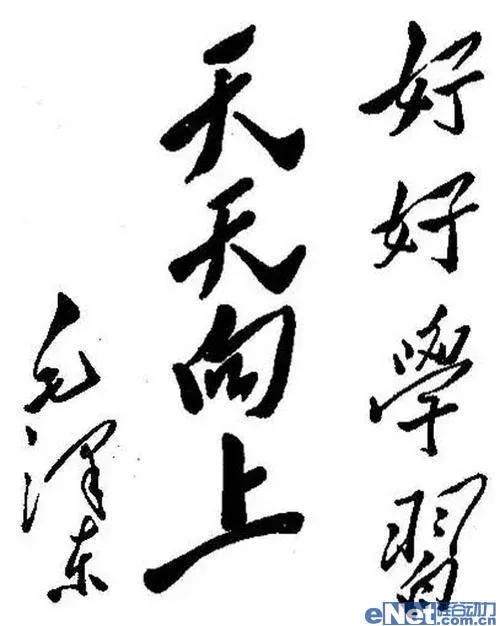 好好學習
天天向上
毛泽东
硅谷动力
eNet.com.cn